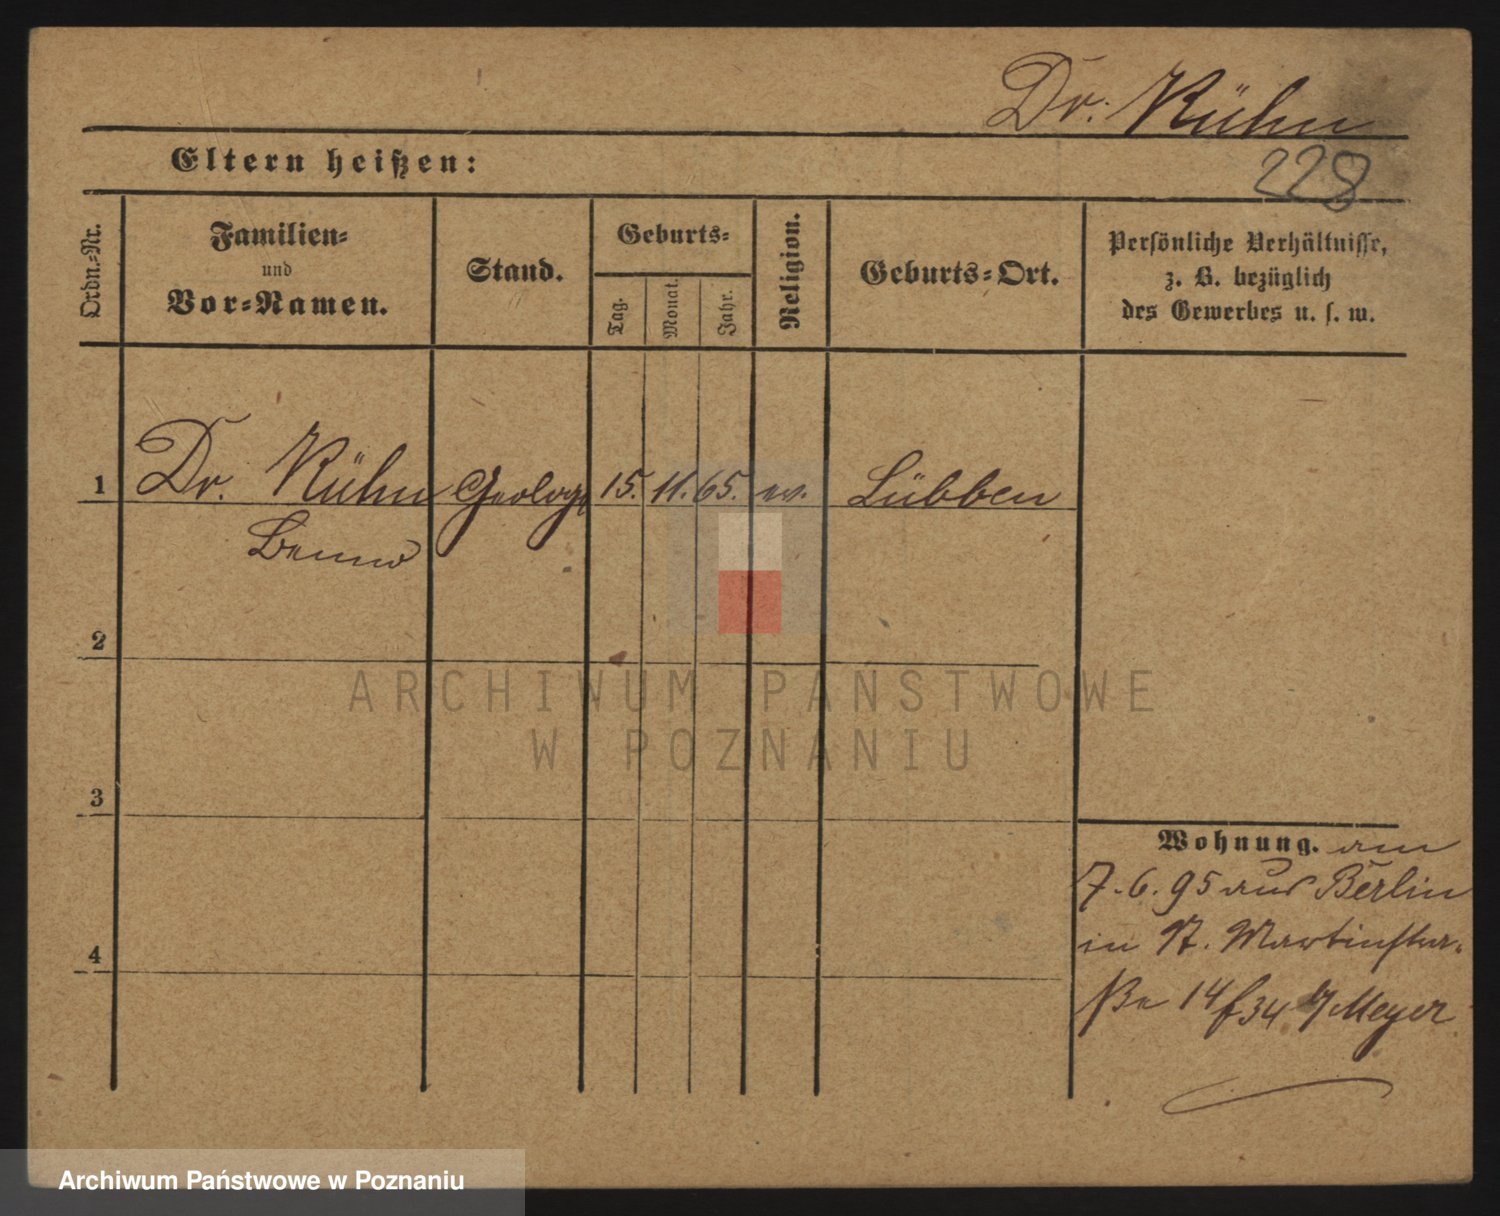 Dr. Kühn
Eltern heißen:
228
Ordn.-Nr.
Familien-
und
Vor-Namen.
Stand.
Geburts-
Tag.
Monat.
Jahr.
Religion.
Geburts-Ort.
Persönliche Verhältnisse,
z. B. bezüglich
des Gewerbes u. s. w.
1 Dr. Kühn Geologe 15. 11. 65. ev. Lübben
Benno
2
ARCHIWUM PAŃSTWOWE
W POZNANIU
3
Wohnung. am
7.6.95 aus Berlin
in St. Martinstra-
ße 14 f34 b/ Meyer
4
Archiwum Państwowe w Poznaniu